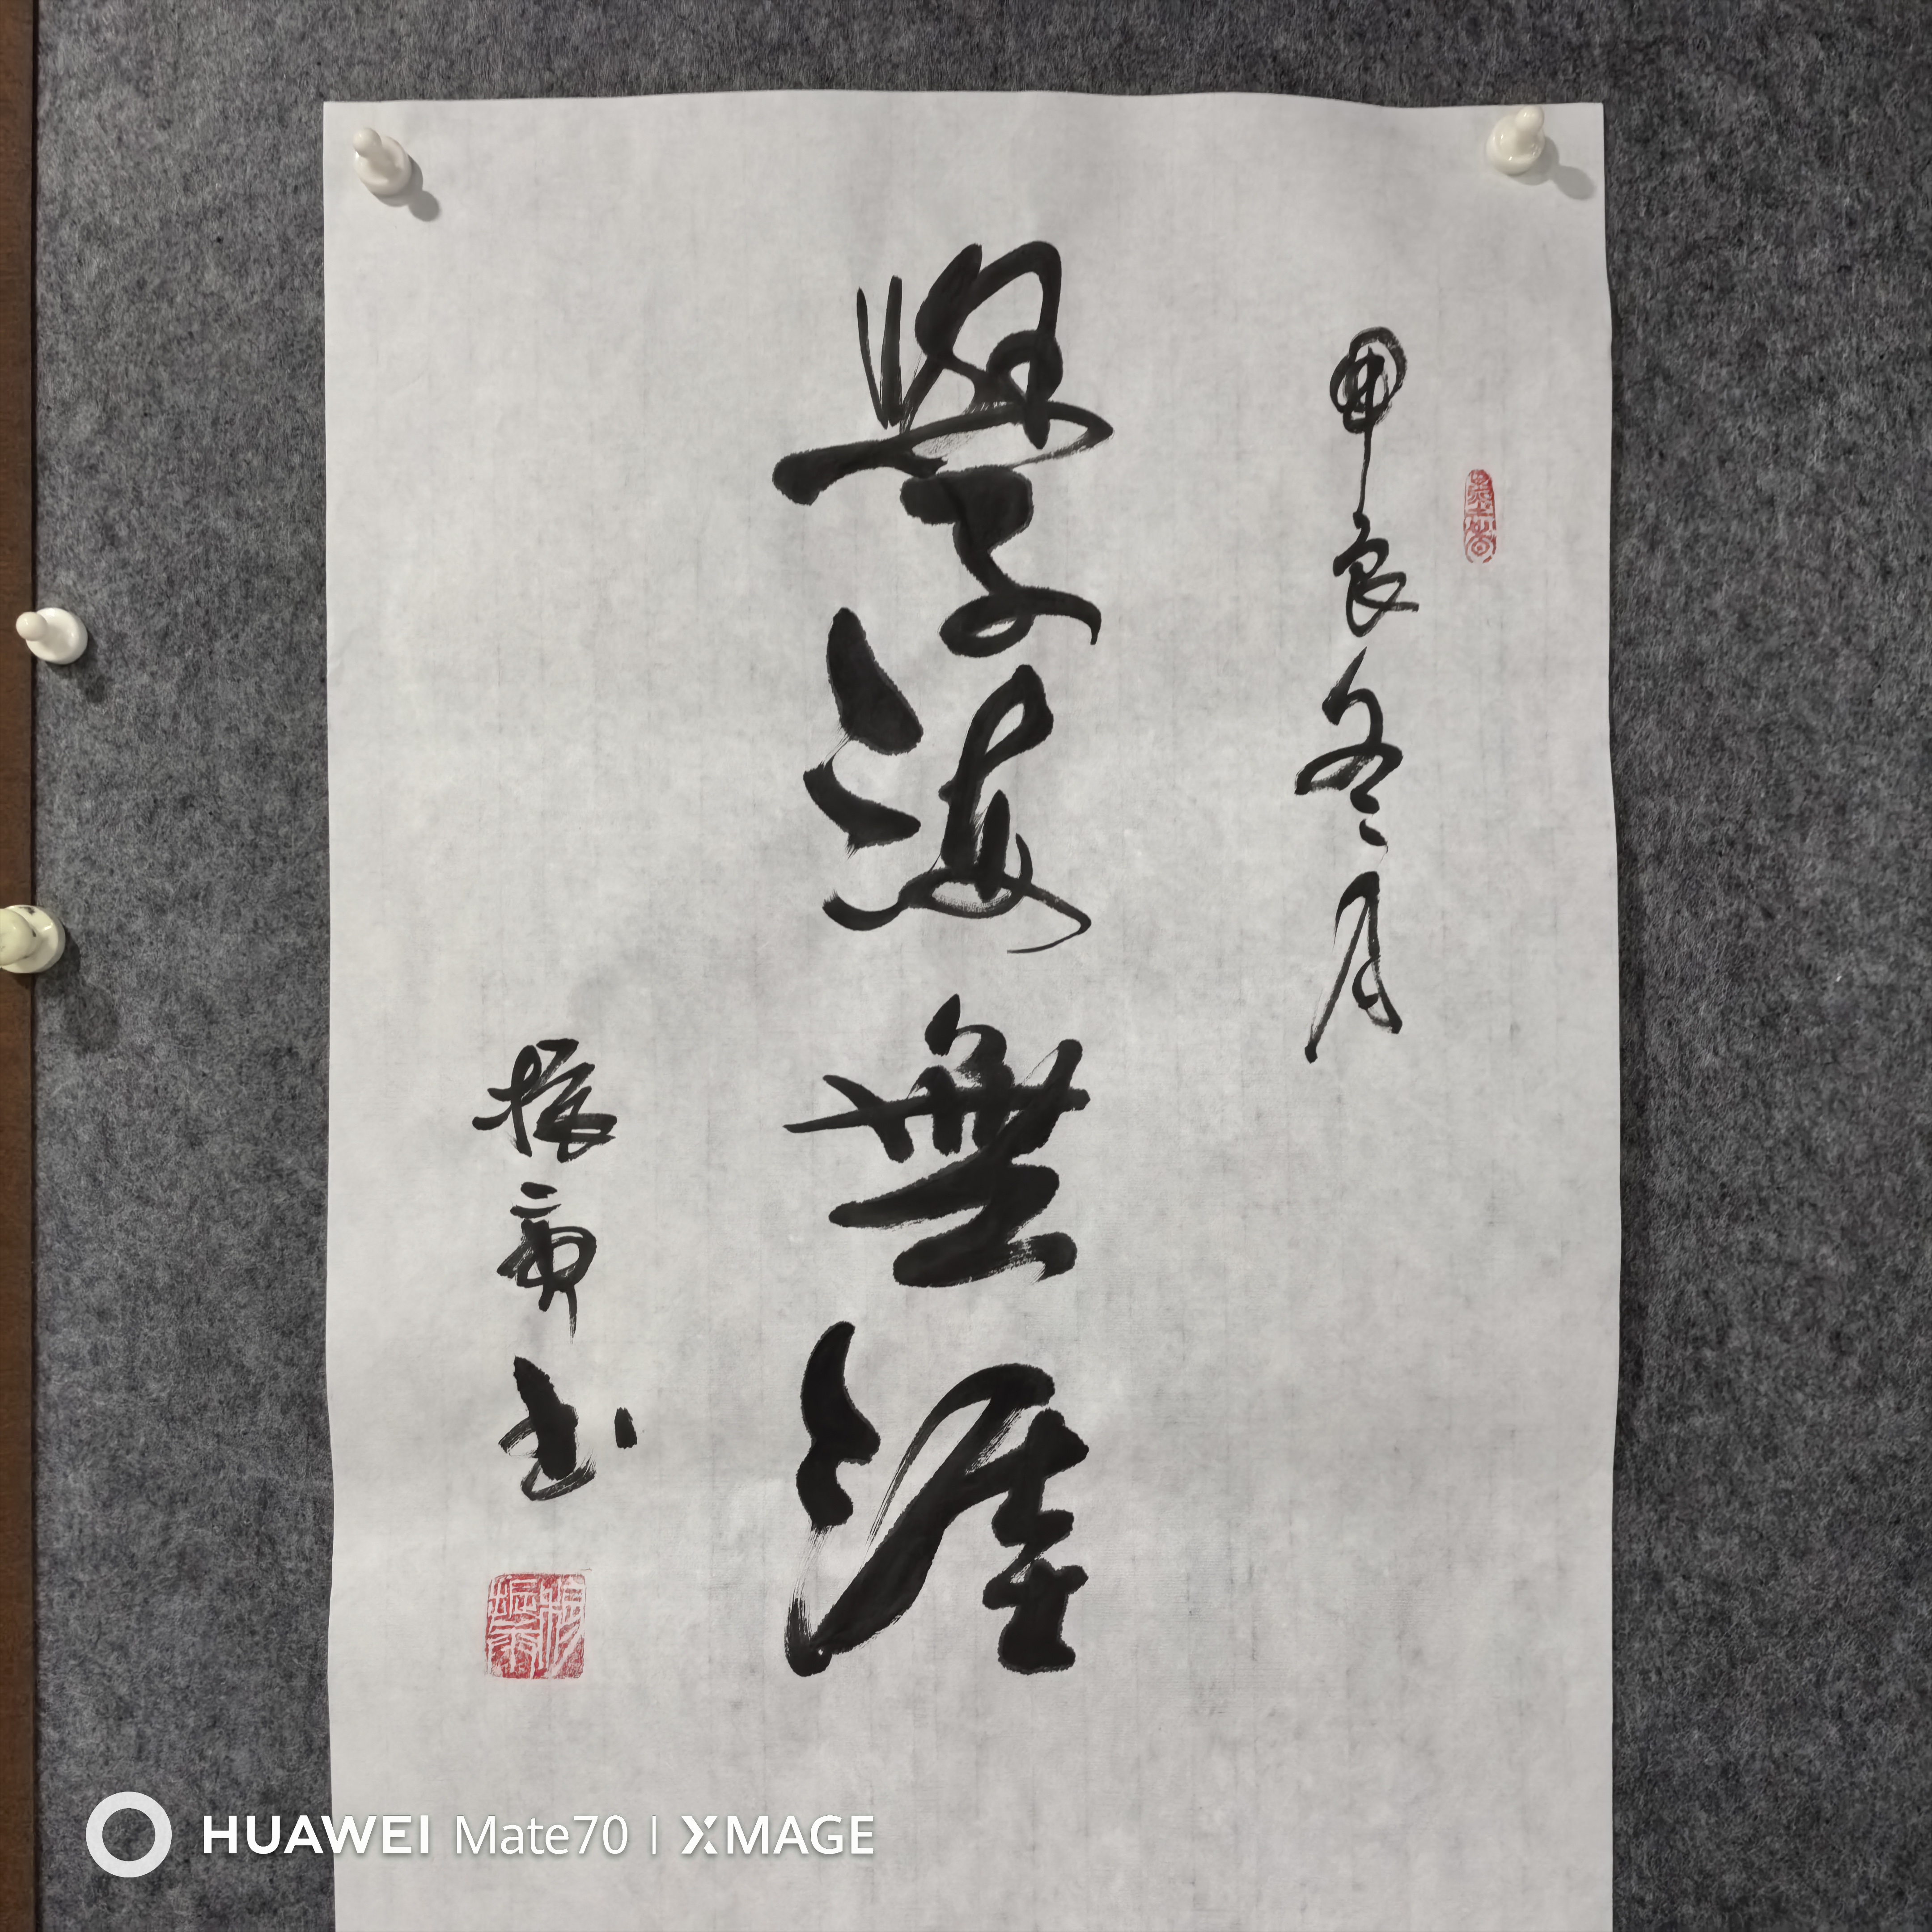 甲辰冬月
學海無涯
振
書
墨香
HUAWEI Mate70 | XMAGE